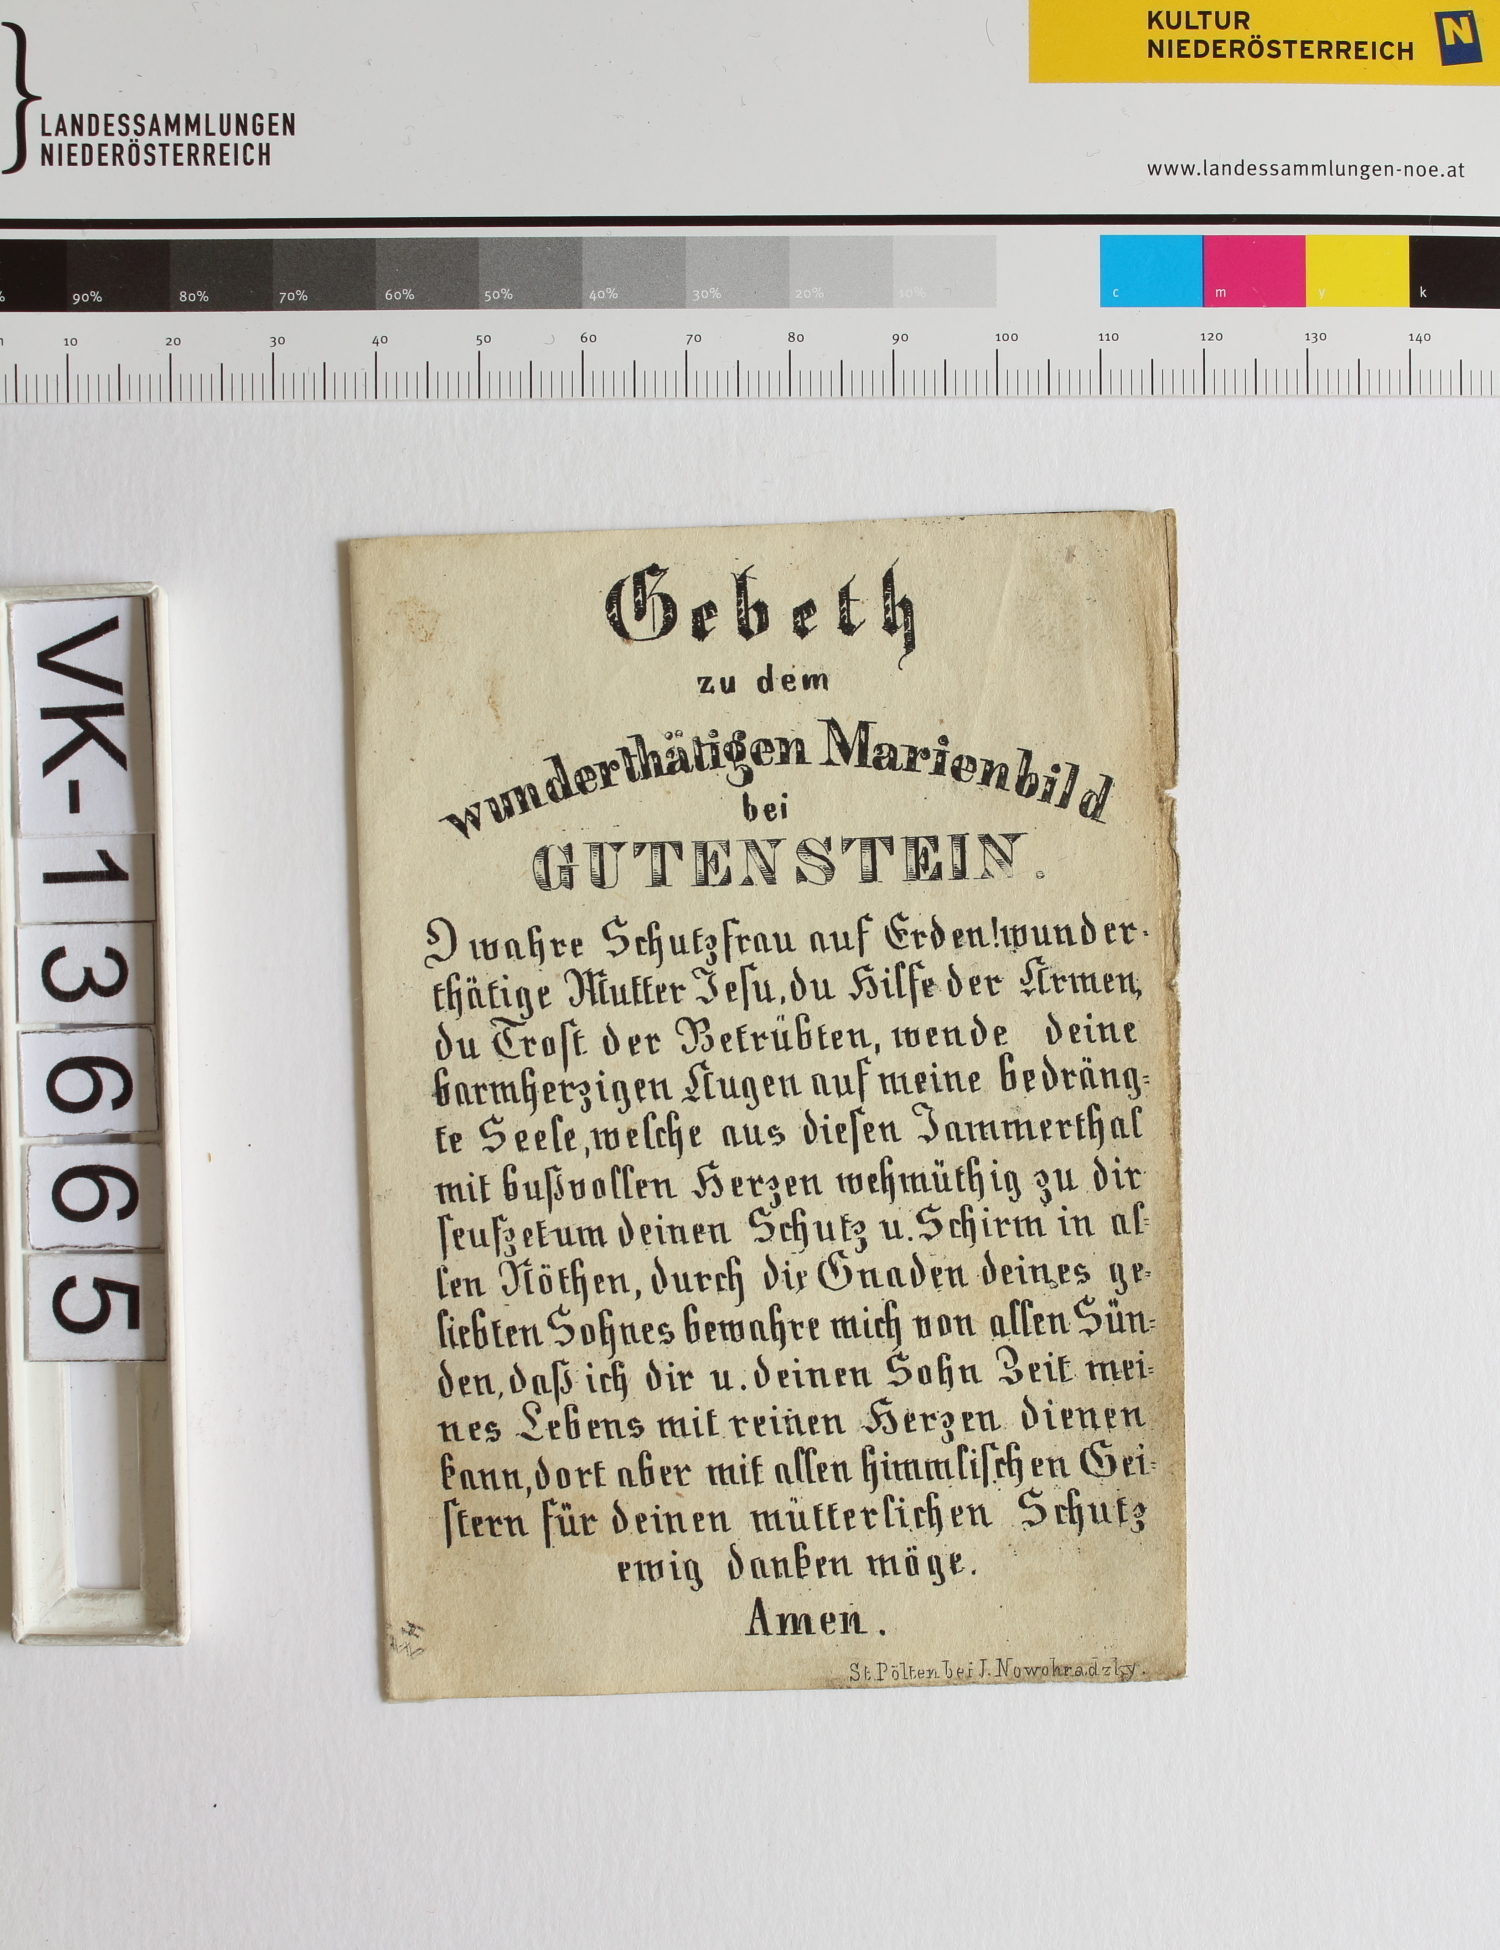 KULTUR
NIEDERÖSTERREICH
N
LANDESSAMMLUNGEN
NIEDERÖSTERREICH
www.landessammlungen-noe.at
90% 80% 70% 60% 50% 40% 30% 20% 10% c m y k
10 20 30 40 50 60 70 80 90 100 110 120 130 140
VK-13665
Gebeth
zu dem
wunderthätigen Marienbild
bei
GUTENSTEIN.
O wahre Schutzfrau auf Erden! wunder-
thätige Mutter Jesu, du Hilfe der Armen,
du Trost der Betrübten, wende deine
barmherzigen Augen auf meine bedräng=
te Seele, welche aus diesen Jammerthal
mit bußvollen Herzen wehmüthig zu dir
seufzet um deinen Schutz u. Schirm in al=
len Nöthen, durch die Gnaden deines ge=
liebten Sohnes bewahre mich von allen Sün=
den, daß ich dir u. deinen Sohn Zeit mei=
nes Lebens mit reinen Herzen dienen
kann, dort aber mit allen himmlischen Gei=
stern für deinen mütterlichen Schutz
ewig danken möge.
Amen.
St. Pölten bei J. Nowohradzky.